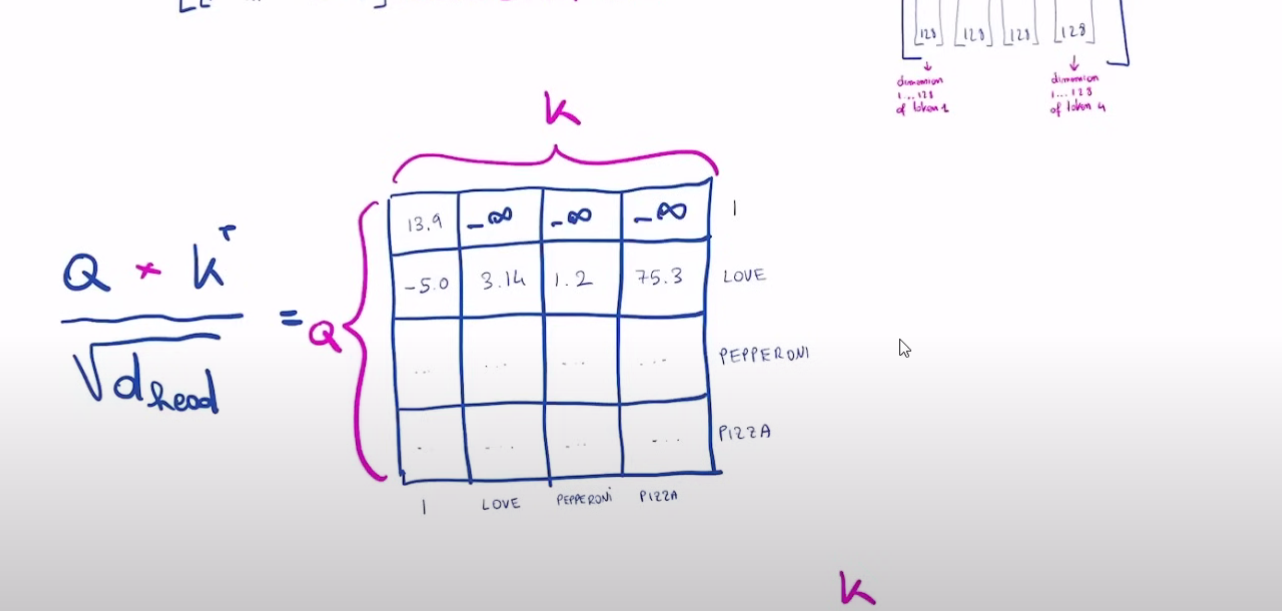 128 128 128 128
dimension
1...128
of token 1
dimension
1...128
of token 4
K
Q * K^T
√d head
=
Q
13.9 -∞ -∞ -∞ I
-5.0 3.14 1.2 75.3 LOVE
... ... ... ... PEPPERONI
... ... ... ... PIZZA
I LOVE PEPPERONI PIZZA
K